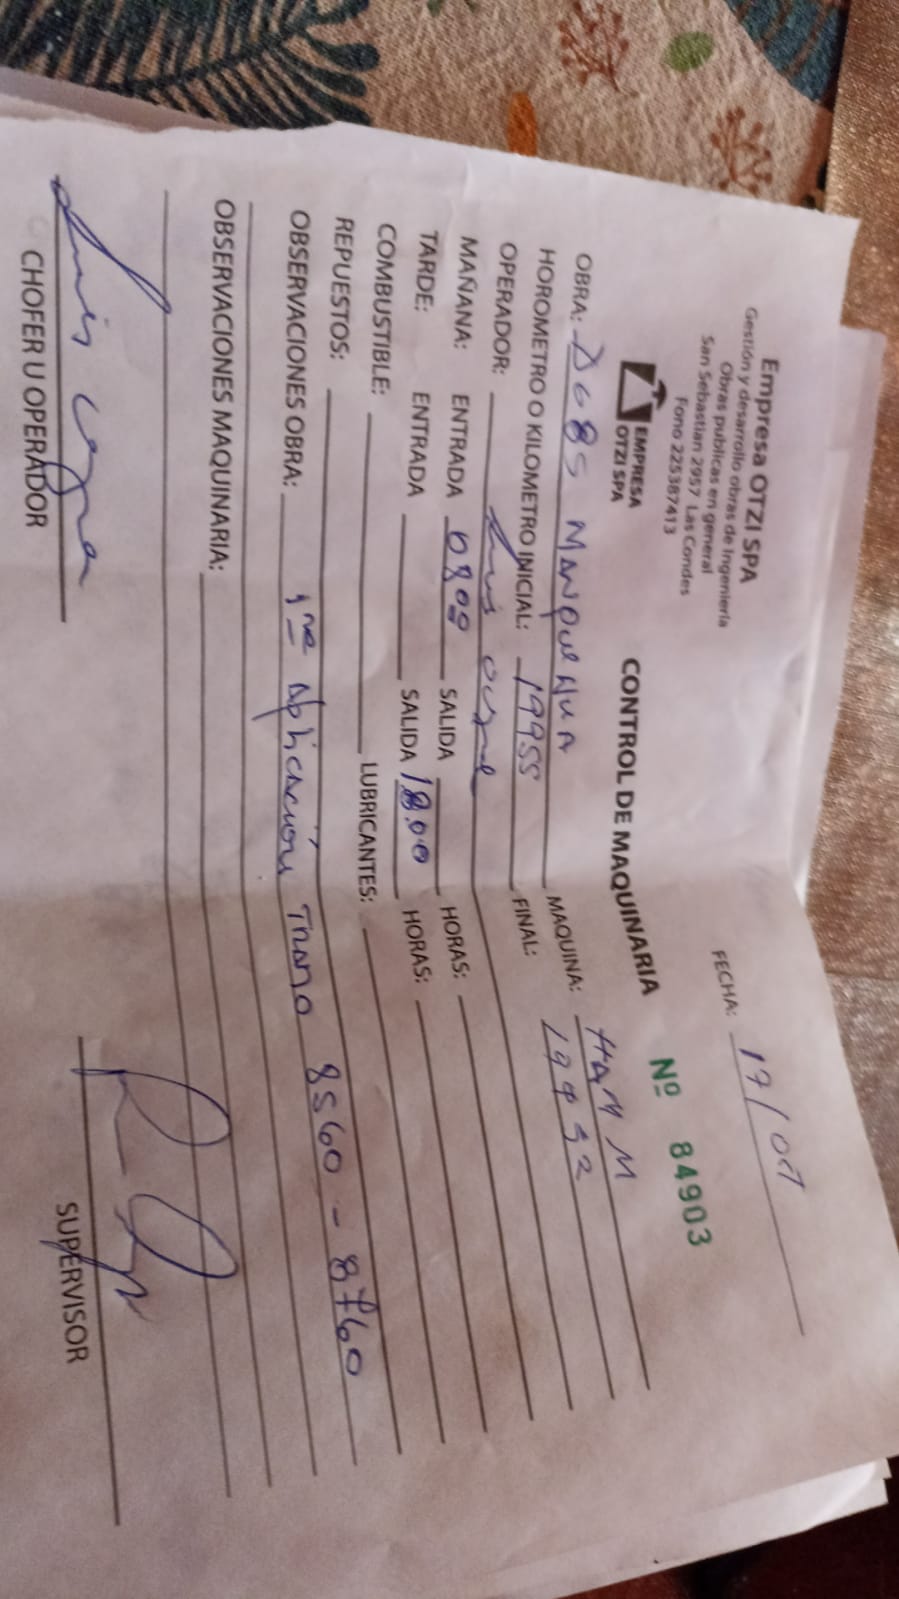 Empresa OTZI SPA
Gestión y desarrollo obras de Ingeniería
Obras publicas en general
San Sebastian 2957 Las Condes
Fono 225387413
EMPRESA
OTZI SPA
FECHA: 17/Oct
Nº 84903
CONTROL DE MAQUINARIA
OBRA: MANQUEHUA MAQUINA: HAMM
HOROMETRO O KILOMETRO INICIAL: 19955 FINAL:
OPERADOR: Luis
MAÑANA: ENTRADA 0800 SALIDA HORAS:
TARDE: ENTRADA SALIDA 18.00 HORAS:
COMBUSTIBLE: LUBRICANTES:
REPUESTOS:
OBSERVACIONES OBRA: 1ra Aplicación Tramo 8560 - 8760
OBSERVACIONES MAQUINARIA:
Luis
CHOFER U OPERADOR
SUPERVISOR